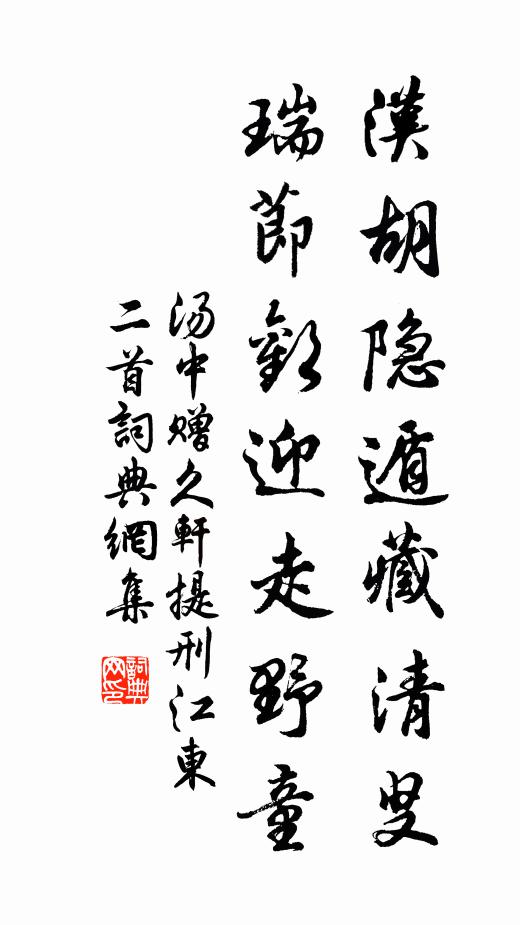 漢胡隐遁藏清叟
瑞節歡迎走野童
汤中赠久軒提刑江東
二首詞典網集
詞典網印